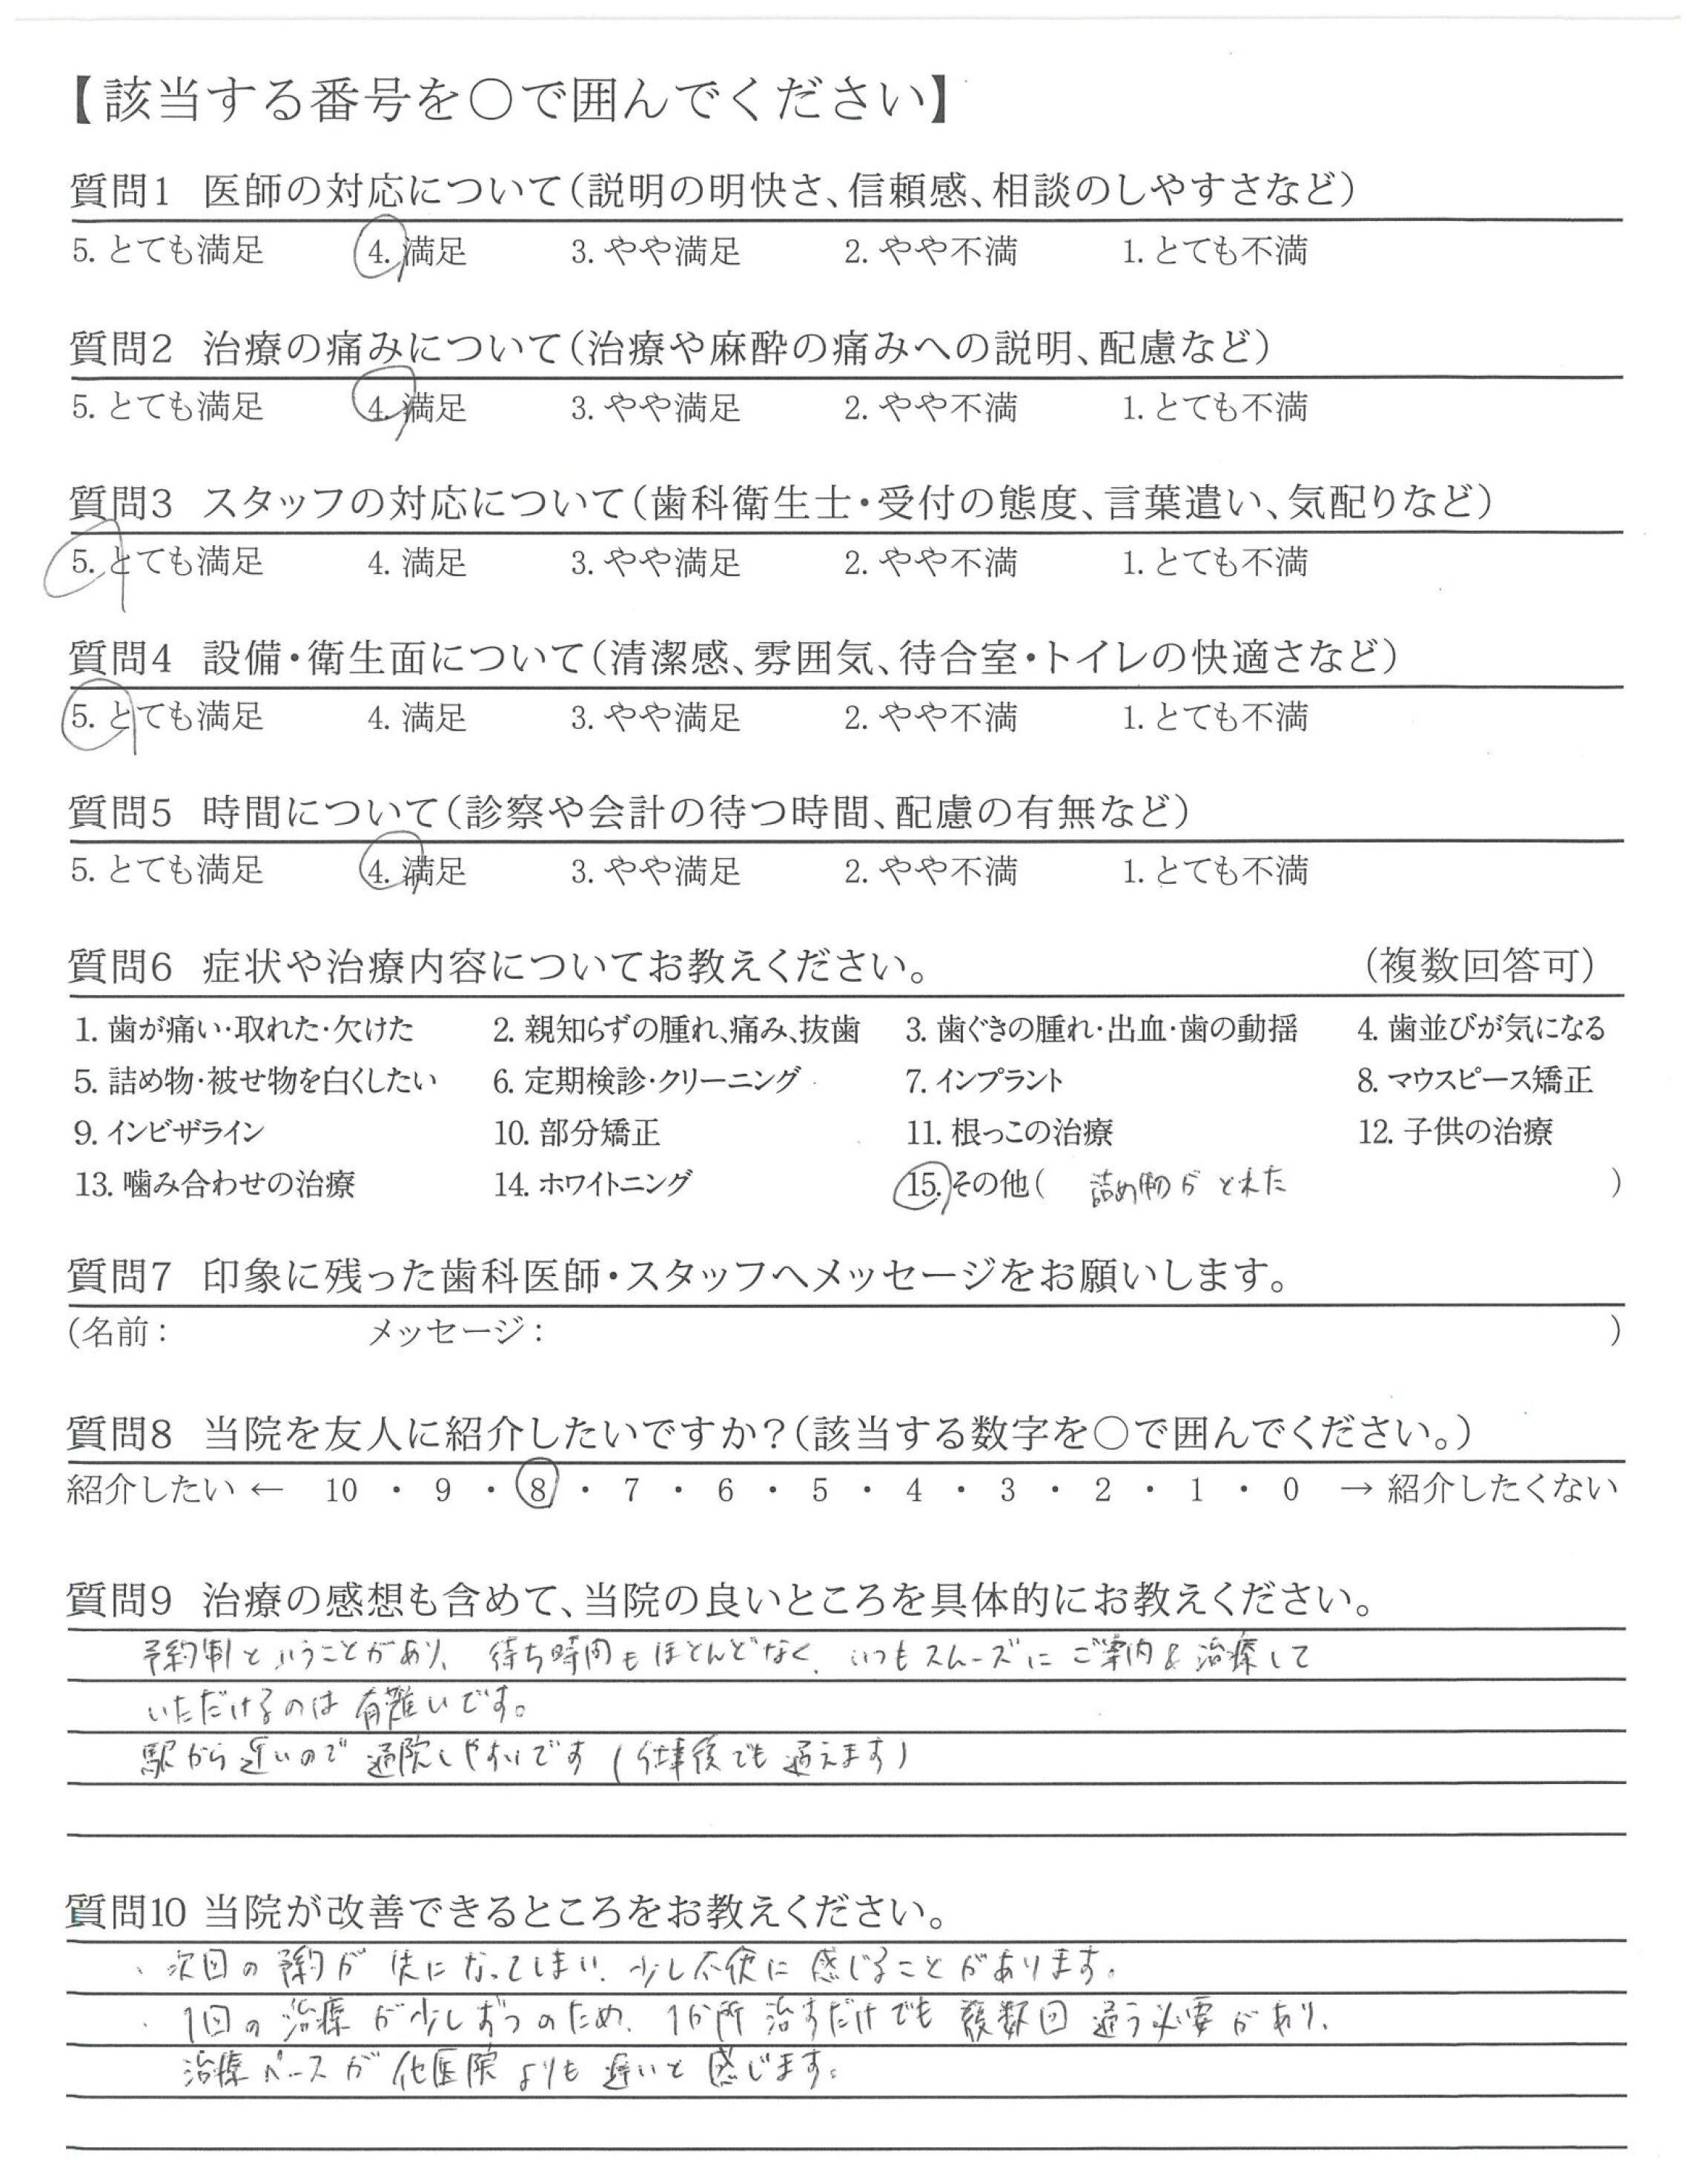 【該当する番号を〇で囲んでください】
質問1 医師の対応について(説明の明快さ、信頼感、相談のしやすさなど)
5. とても満足 4. 満足 3. やや満足 2. やや不満 1. とても不満
質問2 治療の痛みについて(治療や麻酔の痛みへの説明、配慮など)
5. とても満足 4. 満足 3. やや満足 2. やや不満 1. とても不満
質問3 スタッフの対応について(歯科衛生士・受付の態度、言葉遣い、気配りなど)
5. とても満足 4. 満足 3. やや満足 2. やや不満 1. とても不満
質問4 設備・衛生面について(清潔感、雰囲気、待合室・トイレの快適さなど)
5. とても満足 4. 満足 3. やや満足 2. やや不満 1. とても不満
質問5 時間について(診察や会計の待つ時間、配慮の有無など)
5. とても満足 4. 満足 3. やや満足 2. やや不満 1. とても不満
質問6 症状や治療内容についてお教えください。 (複数回答可)
1. 歯が痛い・取れた・欠けた 2. 親知らずの腫れ、痛み、抜歯 3. 歯ぐきの腫れ・出血・歯の動揺 4. 歯並びが気になる
5. 詰め物・被せ物を白くしたい 6. 定期検診・クリーニング 7. インプラント 8. マウスピース矯正
9. インビザライン 10. 部分矯正 11. 根っこの治療 12. 子供の治療
13. 噛み合わせの治療 14. ホワイトニング 15. その他( 詰め物がとれた )
質問7 印象に残った歯科医師・スタッフへメッセージをお願いします。
(名前: メッセージ: )
質問8 当院を友人に紹介したいですか?(該当する数字を〇で囲んでください。)
紹介したい ← 10 ・ 9 ・ 8 ・ 7 ・ 6 ・ 5 ・ 4 ・ 3 ・ 2 ・ 1 ・ 0 → 紹介したくない
質問9 治療の感想も含めて、当院の良いところを具体的にお教えください。
予約制ということがあり、待ち時間もほとんどなく、いつもスムーズにご案内&治療して
いただけるのは有難いです。
駅から近いので通院しやすいです(仕事後でも通えます)
質問10 当院が改善できるところをお教えください。
・次回の予約が先になってしまい、少し不便に感じることがあります。
・1回の治療が少しずつのため、1か所治すだけでも複数回通う必要があり、
治療ペースが他医院よりも遅いと感じます。